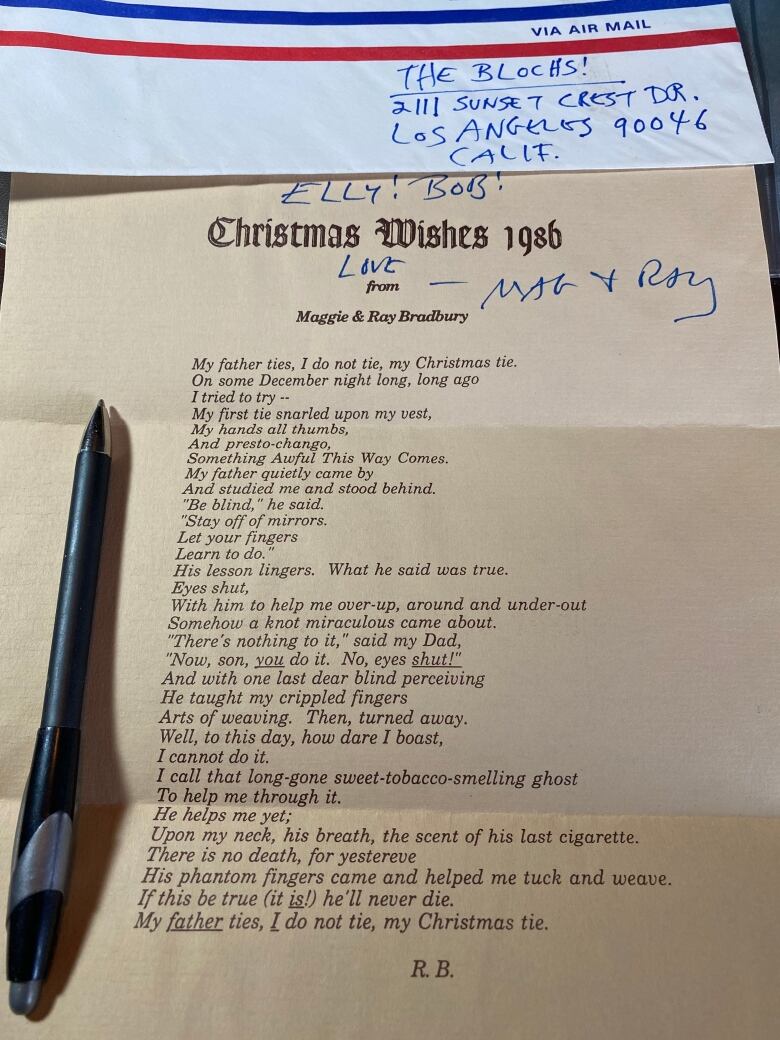 VIA AIR MAIL
THE BLOCHS!
2111 SUNSET CREST DR.
LOS ANGELES 90046
CALIF.
ELLY! BOB!
Christmas Wishes 1986
LOVE
from — MAG + RAY
Maggie & Ray Bradbury
My father ties, I do not tie, my Christmas tie.
On some December night long, long ago
I tried to try --
My first tie snarled upon my vest,
My hands all thumbs,
And presto-chango,
Something Awful This Way Comes.
My father quietly came by
And studied me and stood behind.
"Be blind," he said.
"Stay off of mirrors.
Let your fingers
Learn to do."
His lesson lingers. What he said was true.
Eyes shut,
With him to help me over-up, around and under-out
Somehow a knot miraculous came about.
"There's nothing to it," said my Dad,
"Now, son, you do it. No, eyes shut!"
And with one last dear blind perceiving
He taught my crippled fingers
Arts of weaving. Then, turned away.
Well, to this day, how dare I boast,
I cannot do it.
I call that long-gone sweet-tobacco-smelling ghost
To help me through it.
He helps me yet;
Upon my neck, his breath, the scent of his last cigarette.
There is no death, for yestereve
His phantom fingers came and helped me tuck and weave.
If this be true (it is!) he'll never die.
My father ties, I do not tie, my Christmas tie.
R. B.